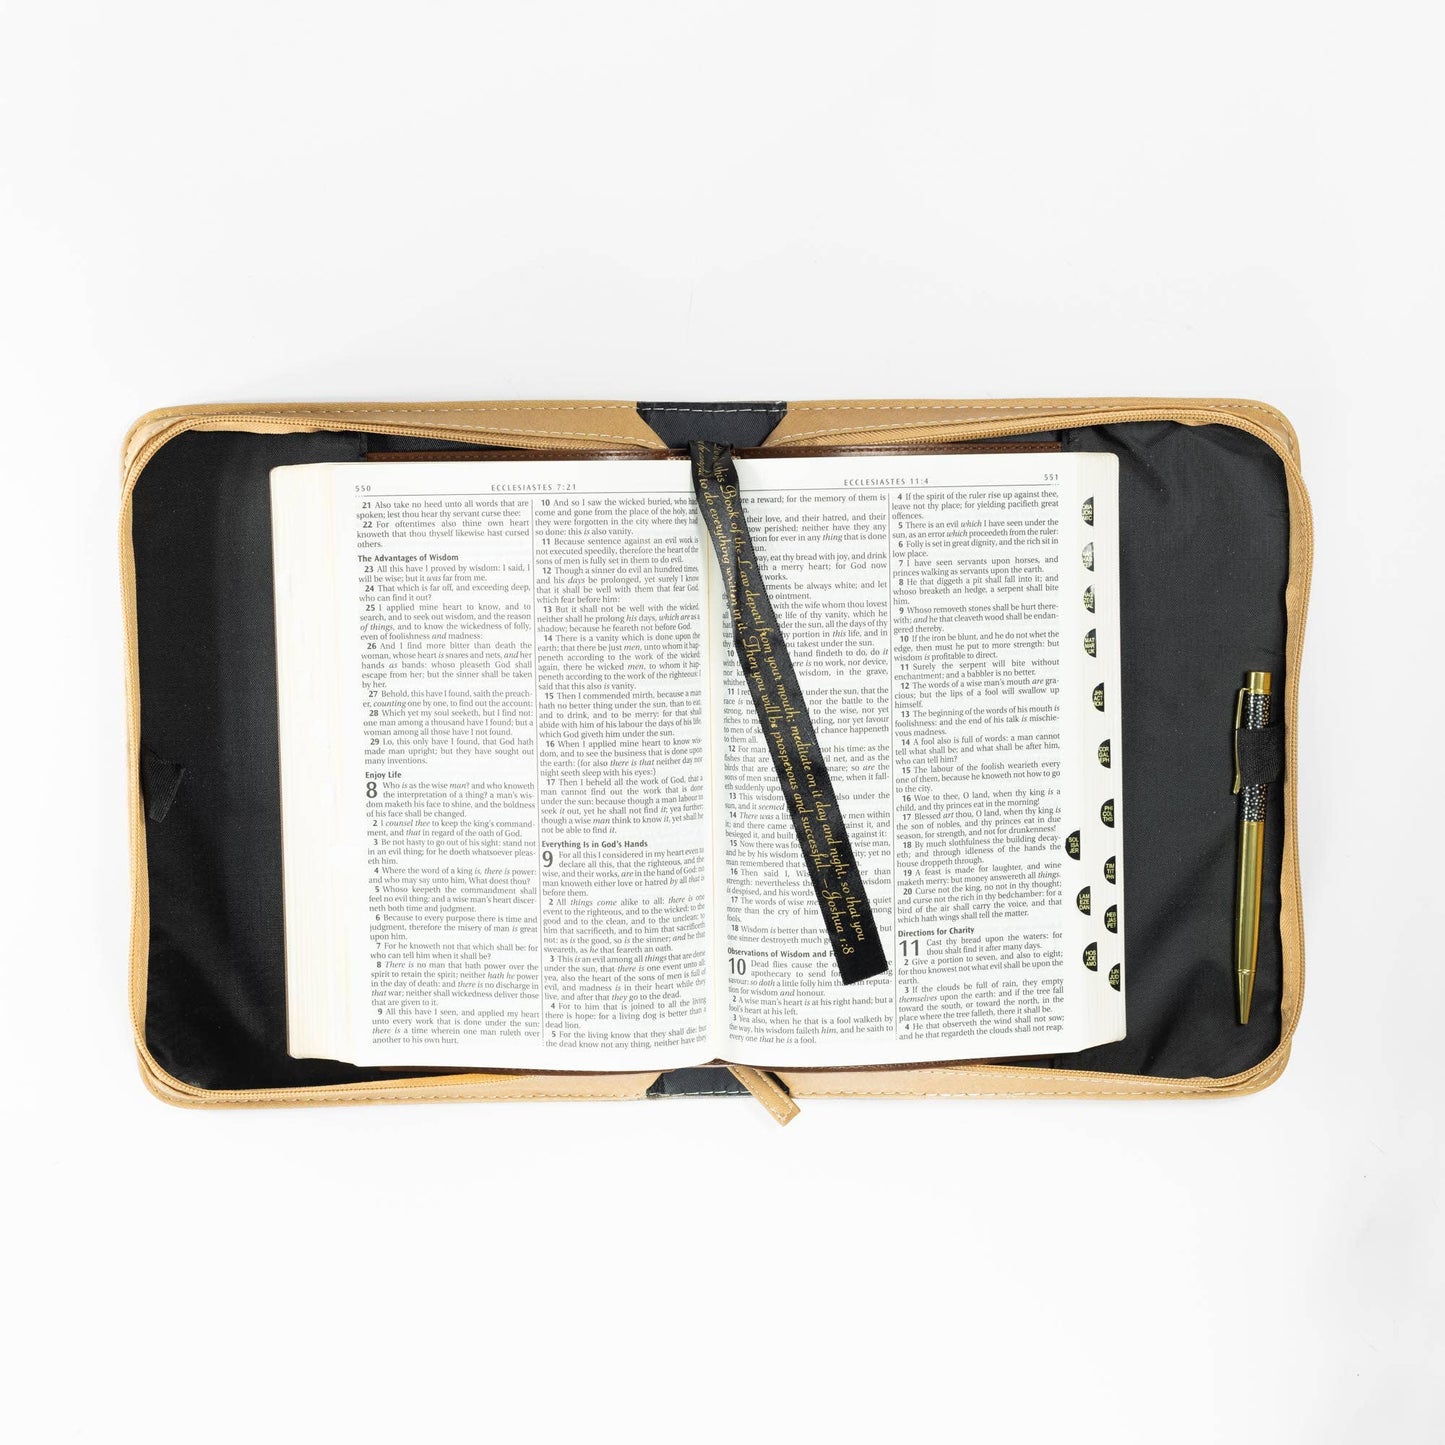 550
ECCLESIASTES 7:21
21 Also take no heed unto all words that are
spoken; lest thou hear thy servant curse thee:
22 For oftentimes also thine own heart
knoweth that thou thyself likewise hast cursed
others.
The Advantages of Wisdom
23 All this have I proved by wisdom: I said, I
will be wise; but it was far from me.
24 That which is far off, and exceeding deep,
who can find it out?
25 I applied mine heart to know, and to
search, and to seek out wisdom, and the reason
of things, and to know the wickedness of folly,
even of foolishness and madness:
26 And I find more bitter than death the
woman, whose heart is snares and nets, and her
hands as bands: whoso pleaseth God shall
escape from her; but the sinner shall be taken
by her.
27 Behold, this have I found, saith the preach-
er, counting one by one, to find out the account:
28 Which yet my soul seeketh, but I find not:
one man among a thousand have I found; but a
woman among all those have I not found.
29 Lo, this only have I found, that God hath
made man upright; but they have sought out
many inventions.
Enjoy Life
8 Who is as the wise man? and who knoweth
the interpretation of a thing? a man's wis-
dom maketh his face to shine, and the boldness
of his face shall be changed.
2 I counsel thee to keep the king's command-
ment, and that in regard of the oath of God.
3 Be not hasty to go out of his sight: stand not
in an evil thing; for he doeth whatsoever pleas-
eth him.
4 Where the word of a king is, there is power:
and who may say unto him, What doest thou?
5 Whoso keepeth the commandment shall
feel no evil thing: and a wise man's heart discer-
neth both time and judgment.
6 Because to every purpose there is time and
judgment, therefore the misery of man is great
upon him.
7 For he knoweth not that which shall be: for
who can tell him when it shall be?
8 There is no man that hath power over the
spirit to retain the spirit; neither hath he power
in the day of death: and there is no discharge in
that war; neither shall wickedness deliver those
that are given to it.
9 All this have I seen, and applied my heart
unto every work that is done under the sun:
there is a time wherein one man ruleth over
another to his own hurt.
10 And so I saw the wicked buried, who had
come and gone from the place of the holy, and
they were forgotten in the city where they had
so done: this is also vanity.
11 Because sentence against an evil work is
not executed speedily, therefore the heart of the
sons of men is fully set in them to do evil.
12 Though a sinner do evil an hundred times,
and his days be prolonged, yet surely I know
that it shall be well with them that fear God,
which fear before him:
13 But it shall not be well with the wicked,
neither shall he prolong his days, which are as a
shadow; because he feareth not before God.
14 There is a vanity which is done upon the
earth; that there be just men, unto whom it hap-
peneth according to the work of the wicked;
again, there be wicked men, to whom it hap-
peneth according to the work of the righteous: I
said that this also is vanity.
15 Then I commended mirth, because a man
hath no better thing under the sun, than to eat,
and to drink, and to be merry: for that shall
abide with him of his labour the days of his life,
which God giveth him under the sun.
16 When I applied mine heart to know wis-
dom, and to see the business that is done upon
the earth: (for also there is that neither day nor
night seeth sleep with his eyes:)
17 Then I beheld all the work of God, that a
man cannot find out the work that is done
under the sun: because though a man labour to
seek it out, yet he shall not find it; yea further;
though a wise man think to know it, yet shall he
not be able to find it.
Everything Is in God's Hands
9 For all this I considered in my heart even to
declare all this, that the righteous, and the
wise, and their works, are in the hand of God: no
man knoweth either love or hatred by all that is
before them.
2 All things come alike to all: there is one
event to the righteous, and to the wicked; to the
good and to the clean, and to the unclean; to
him that sacrificeth, and to him that sacrificeth
not: as is the good, so is the sinner; and he that
sweareth, as he that feareth an oath.
3 This is an evil among all things that are done
under the sun, that there is one event unto all:
yea, also the heart of the sons of men is full of
evil, and madness is in their heart while they
live, and after that they go to the dead.
4 For to him that is joined to all the living
there is hope: for a living dog is better than a
dead lion.
5 For the living know that they shall die: but
the dead know not any thing, neither have they
this Book of the Law depart from your mouth; meditate on it day and night, so that you
to do everything written in it. Then you will be prosperous and successful. Joshua 1:8
ECCLESIASTES 11:4
551
a reward; for the memory of them is
their love, and their hatred, and their
now perished; neither have they any
for ever in any thing that is done
sun.
way, eat thy bread with joy, and drink
with a merry heart; for God now
works.
be always white; and let
ointment.
with the wife whom thou lovest
the life of thy vanity, which he
under the sun, all the days of thy
portion in this life, and in
takest under the sun.
hand findeth to do, do it
is no work, nor device,
nor wisdom, in the grave,
11 I under the sun, that the
race is nor the battle to the
strong, to the wise, nor yet
nor yet favour
to men of chance happeneth
to them all.
12 For man not his time: as the
fishes that are evil net, and as the
birds that are snare; so are the
sons of men when it fall-
eth suddenly
13 This wisdom also under the
sun, and it seemed
14 There was a men within
it; and there came against it, and
besieged it, and built against it:
15 Now there was
and he by his wisdom yet no man
remembered that
16 Then said I, than
strength: nevertheless wisdom
is despised, and his words
17 The words of wise quiet
more than the cry of him among
fools.
18 Wisdom is better than but
one sinner destroyeth much
Observations of Wisdom and
10 Dead flies cause the
apothecary to send
savour: so doth a little folly him that is in reputa-
tion for wisdom and honour.
2 A wise man's heart is at his right hand; but a
fool's heart at his left.
3 Yea also, when he that is a fool walketh by
the way, his wisdom faileth him, and he saith to
every one that he is a fool.
4 If the spirit of the ruler rise up against thee,
leave not thy place; for yielding pacifieth great
offences.
5 There is an evil which I have seen under the
sun, as an error which proceedeth from the ruler:
6 Folly is set in great dignity, and the rich sit in
low place.
7 I have seen servants upon horses, and
princes walking as servants upon the earth.
8 He that diggeth a pit shall fall into it; and
whoso breaketh an hedge, a serpent shall bite
him.
9 Whoso removeth stones shall be hurt there-
with; and he that cleaveth wood shall be endan-
gered thereby.
10 If the iron be blunt, and he do not whet the
edge, then must he put to more strength: but
wisdom is profitable to direct.
11 Surely the serpent will bite without
enchantment; and a babbler is no better.
12 The words of a wise man's mouth are gra-
cious; but the lips of a fool will swallow up
himself.
13 The beginning of the words of his mouth is
foolishness: and the end of his talk is mischie-
vous madness.
14 A fool also is full of words: a man cannot
tell what shall be; and what shall be after him,
who can tell him?
15 The labour of the foolish wearieth every
one of them, because he knoweth not how to go
to the city.
16 Woe to thee, O land, when thy king is a
child, and thy princes eat in the morning!
17 Blessed art thou, O land, when thy king is
the son of nobles, and thy princes eat in due
season, for strength, and not for drunkenness!
18 By much slothfulness the building decay-
eth; and through idleness of the hands the
house droppeth through.
19 A feast is made for laughter, and wine
maketh merry: but money answereth all things.
20 Curse not the king, no not in thy thought;
and curse not the rich in thy bedchamber: for a
bird of the air shall carry the voice, and that
which hath wings shall tell the matter.
Directions for Charity
11 Cast thy bread upon the waters: for
thou shalt find it after many days.
2 Give a portion to seven, and also to eight;
for thou knowest not what evil shall be upon the
earth.
3 If the clouds be full of rain, they empty
themselves upon the earth: and if the tree fall
toward the south, or toward the north, in the
place where the tree falleth, there it shall be.
4 He that observeth the wind shall not sow;
and he that regardeth the clouds shall not reap.
MAT
MAR
LUK
JHN
ACT
ROM
COR
GAL
EPH
PHI
COL
THS
SOL
ISA
JER
TIM
TIT
PHN
LAM
EZE
DAN
HEB
JAS
PET
HOS
JOE
AMO
JUD
REV